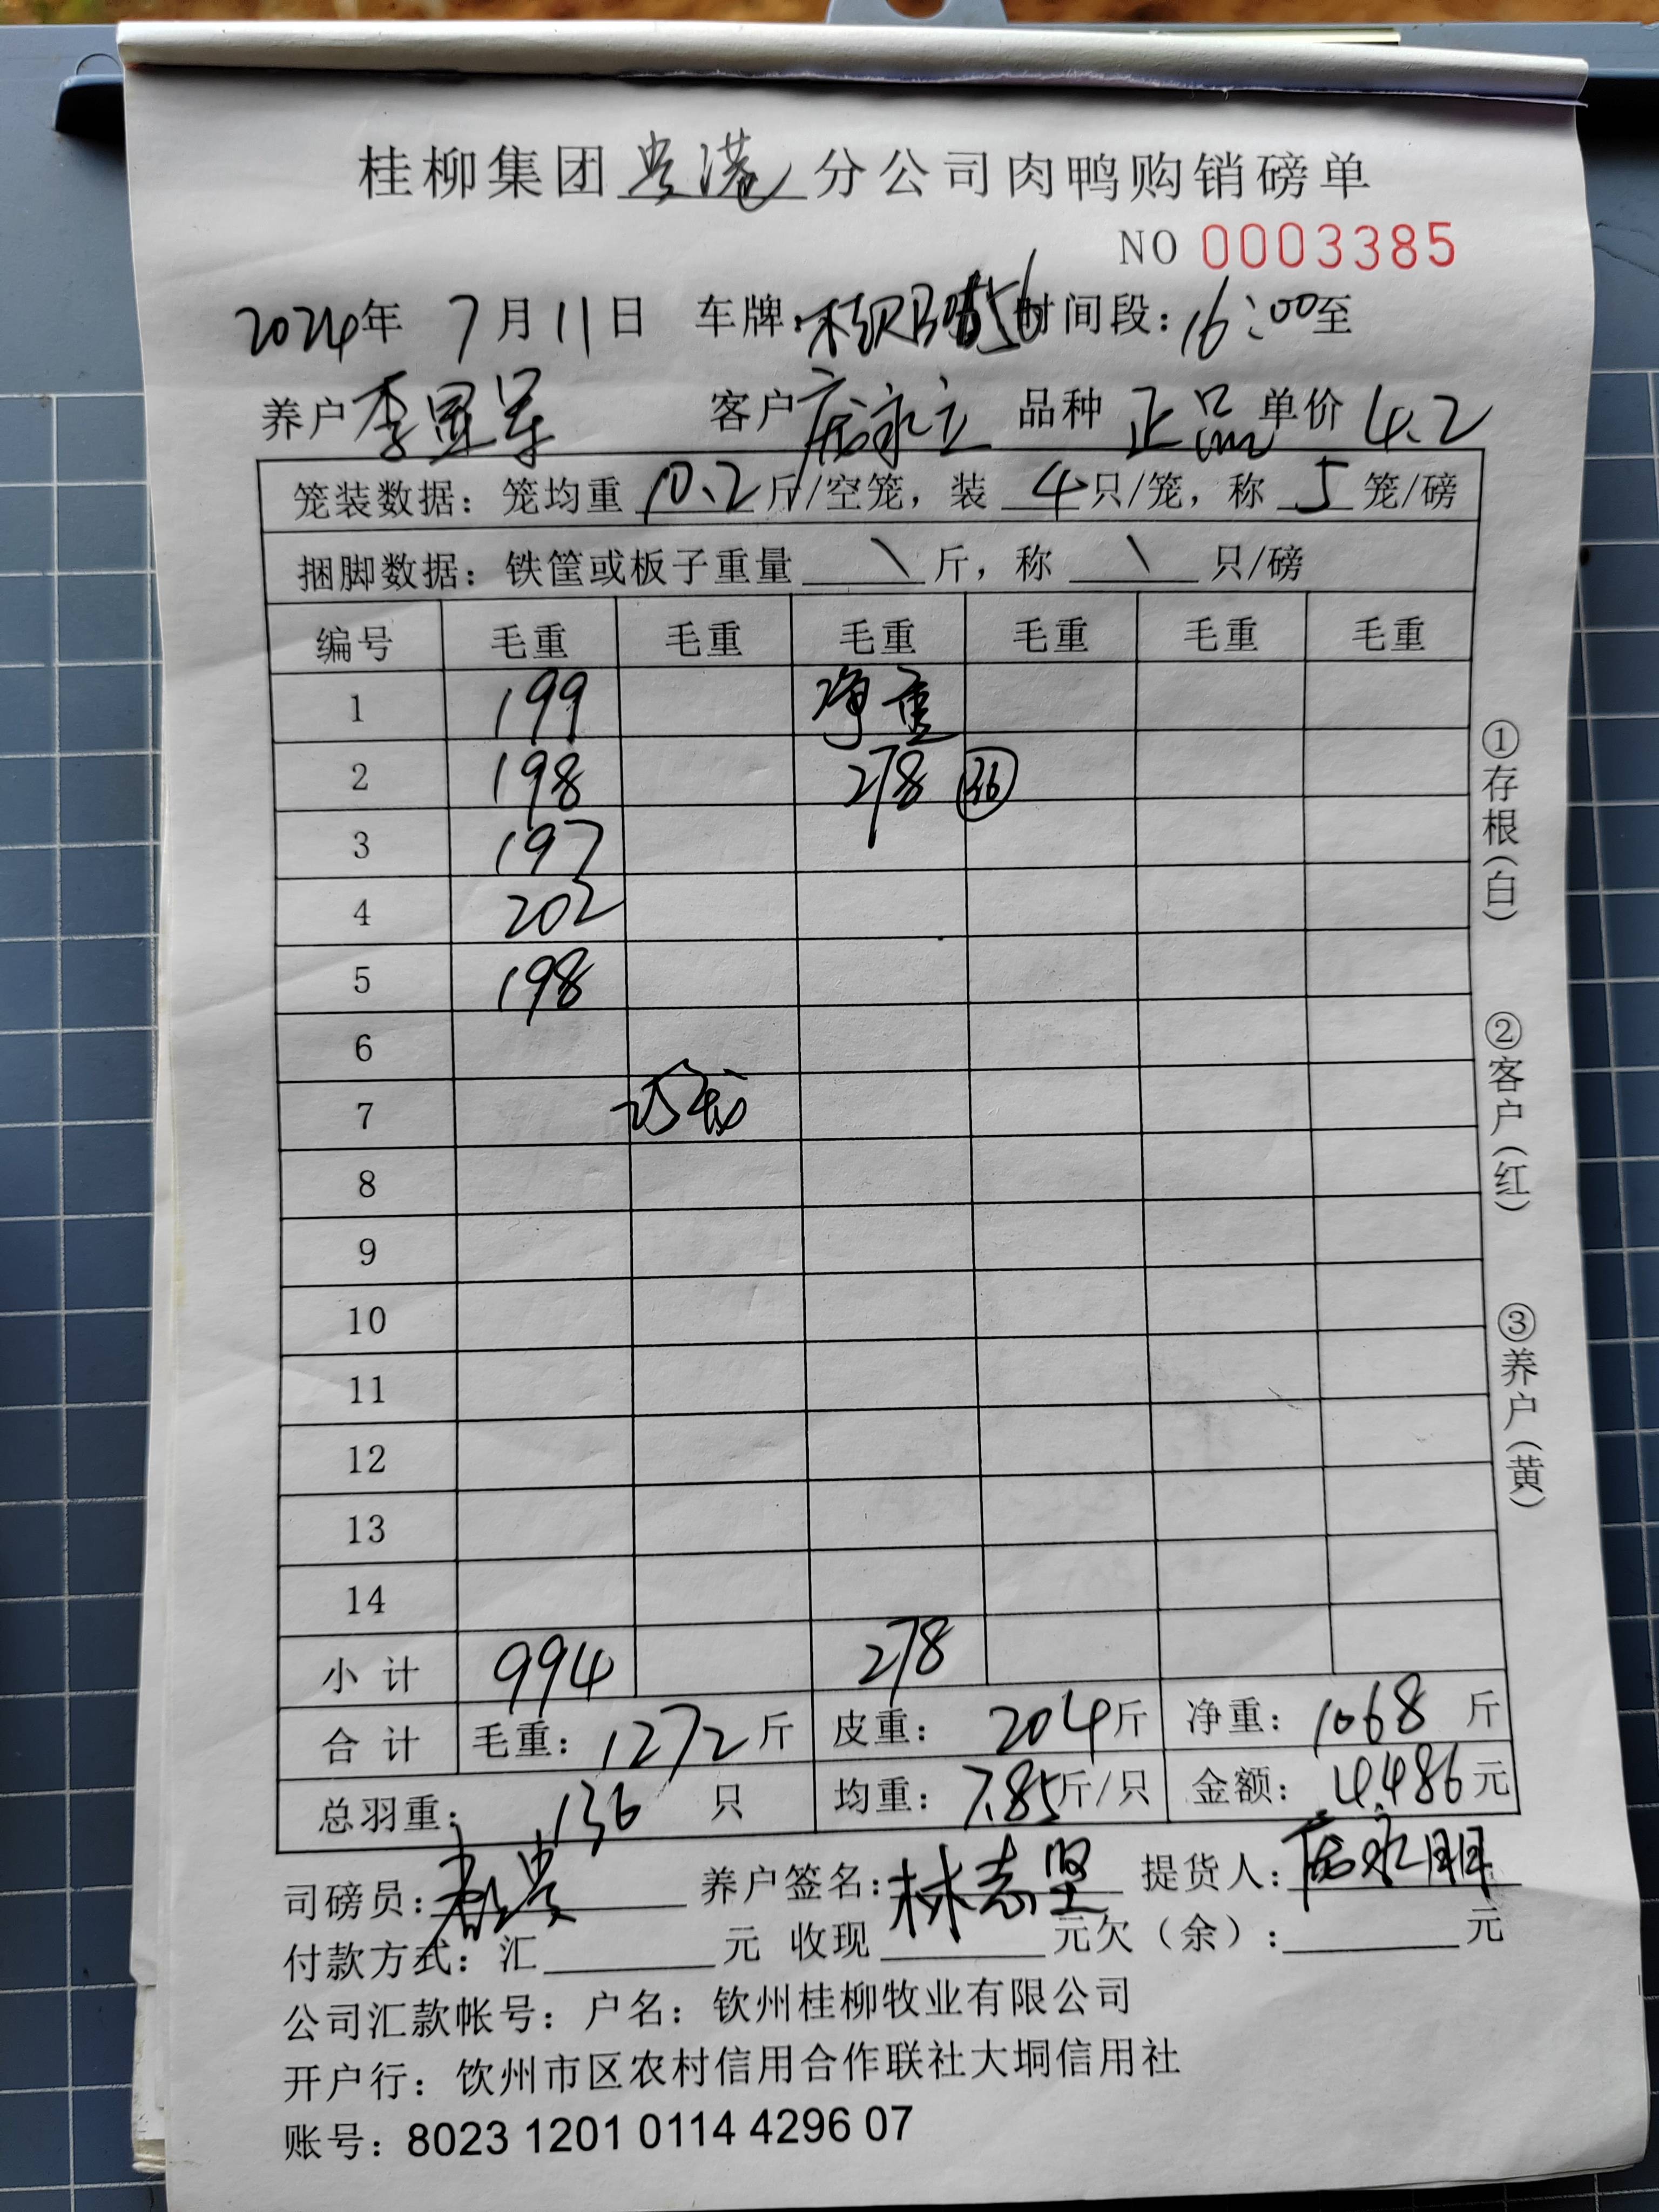 桂柳集团贵港分公司肉鸭购销磅单
NO 0003385
2024年 7月11日 车牌: 时间段: 16:00至
养户 李显军 客户 庞永立 品种 正品 单价 4.2
笼装数据: 笼均重 10.2 斤/空笼, 装 4 只/笼, 称 5 笼/磅
捆脚数据: 铁筐或板子重量 \ 斤, 称 \ 只/磅
编号 毛重 毛重 毛重 毛重 毛重 毛重
1 199 净重
2 198 278 36
3 197
4 202
5 198
6
7
8
9
10
11
12
13
14
小计 994 278
合计 毛重: 1272斤 皮重: 204斤 净重: 1068斤
总羽重: 136 只 均重: 7.85斤/只 金额: 4.486元
司磅员: 养户签名: 林志坚 提货人: 庞永明
付款方式: 汇 元 收现 元欠(余): 元
公司汇款帐号: 户名: 钦州桂柳牧业有限公司
开户行: 钦州市区农村信用合作联社大垌信用社
账号: 8023 1201 0114 4296 07
①存根(白)
②客户(红)
③养户(黄)